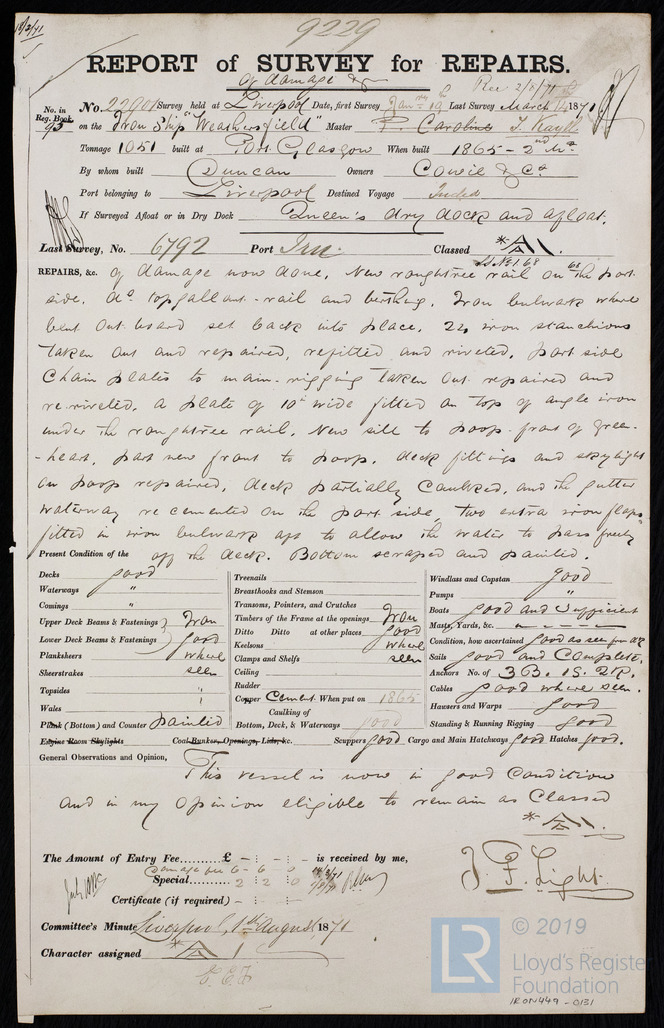 9229
REPORT of SURVEY for REPAIRS.
of damage &c
Rec 2/8/71
No. in Reg. Book 93
No. 22901 Survey held at Liverpool Date, first Survey Jany 19th Last Survey March 1871
on the Iron Ship "Weathersfield" Master
Tonnage 1051 built at Port Glasgow When built 1865 - 2nd Mo
By whom built Duncan Owners Cowie & Co
Port belonging to Liverpool Destined Voyage India
If Surveyed Afloat or in Dry Dock Queen's dry dock and afloat.
Last Survey, No. 6792 Port Classed A1
REPAIRS, &c. of damage now done, New roughtree rail on the port
side. do. topgallant-rail and berthing. Iron bulwark where
bent out board set back into place. 22 iron stanchions
taken out and repaired, refitted and riveted, port side
Chain plates to main-rigging taken out repaired and
re-riveted. A plate of 10" wide fitted on top of angle iron
under the roughtree rail. New sill to poop-front of green-
-heart, part new front to poop. deck fittings and skylight
on poop repaired, deck partially caulked, and the gutter
waterway recemented on the port side, two extra iron flaps
fitted in iron bulwark aft to allow the water to pass freely
off the deck. Bottom scraped and painted.
Present Condition of the
Decks good
Waterways "
Comings "
Upper Deck Beams & Fastenings Iron
Lower Deck Beams & Fastenings good
Planksheers where
Sheerstrakes seen
Topsides "
Wales
Plank (Bottom) and Counter painted
Engine Room Skylights
Treenails
Breasthooks and Stemson
Transoms, Pointers, and Crutches
Timbers of the Frame at the openings Iron
Ditto Ditto at other places good
Keelsons where
Clamps and Shelfs seen
Ceiling
Rudder
Copper Cement. When put on 1865
Caulking of
Bottom, Deck, & Waterways good
Coal-Bunker, Openings, Lids, &c.
Scuppers good
Windlass and Capstan good
Pumps "
Boats good and sufficient
Masts, Yards, &c.
Condition, how ascertained good as seen from
Sails good and Complete.
Anchors No. of 3 B. 1 S. 2 K.
Cables good where seen.
Hawsers and Warps good
Standing & Running Rigging good
Cargo and Main Hatchways good Hatches good.
General Observations and Opinion,
This vessel is now in good condition
and in my opinion eligible to remain as Classed
A1.
The Amount of Entry Fee.......... £ - : - : - is received by me,
Damage fee 6 - 6 - 0
Special.......... 2 2 0
Certificate (if required) -
J F. Light
Committee's Minute Liverpool, 1st August, 1871
Character assigned A 1
LR
© 2019
Lloyd's Register
Foundation
IRON449-0131